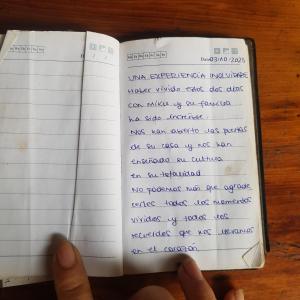 03/10/2025
UNA EXPERIENCIA INOLVIDABLE
Haber vivido estos dos días
con Miku y su familia
ha sido increíble.
Nos han abierto las puertas
de su casa y nos han
enseñado su cultura
en su totalidad
No podemos más que agrade
cerles todos los momentos
vividos y todos los
recuerdos que nos llevamos
en el corazón